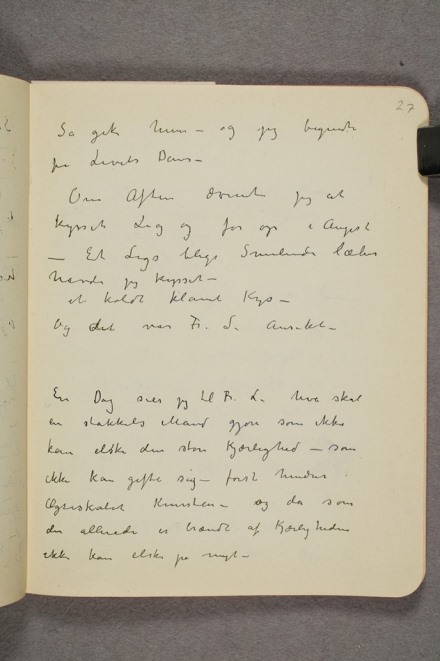 27
Så gik hun – og jeg begynte
på Livets Dans –
Om Aften drømte jeg at
kysset Lig og for op i Angst
– Et Ligs blege Smilende læber
havde jeg kysset –
et koldt klamt Kys –
Og det var Fr. L. Ansikt –
En Dag sier jeg til Fr. L. hva skal
en stakkels Mand gjøre som ikke
kan elske den store Kjærlighed – som
ikke kan gifte sig – først hindrer
Ægteskabet Kunsten – og da som
den allerede er brændt af Kjærligheden
ikke kan elske på nyt –